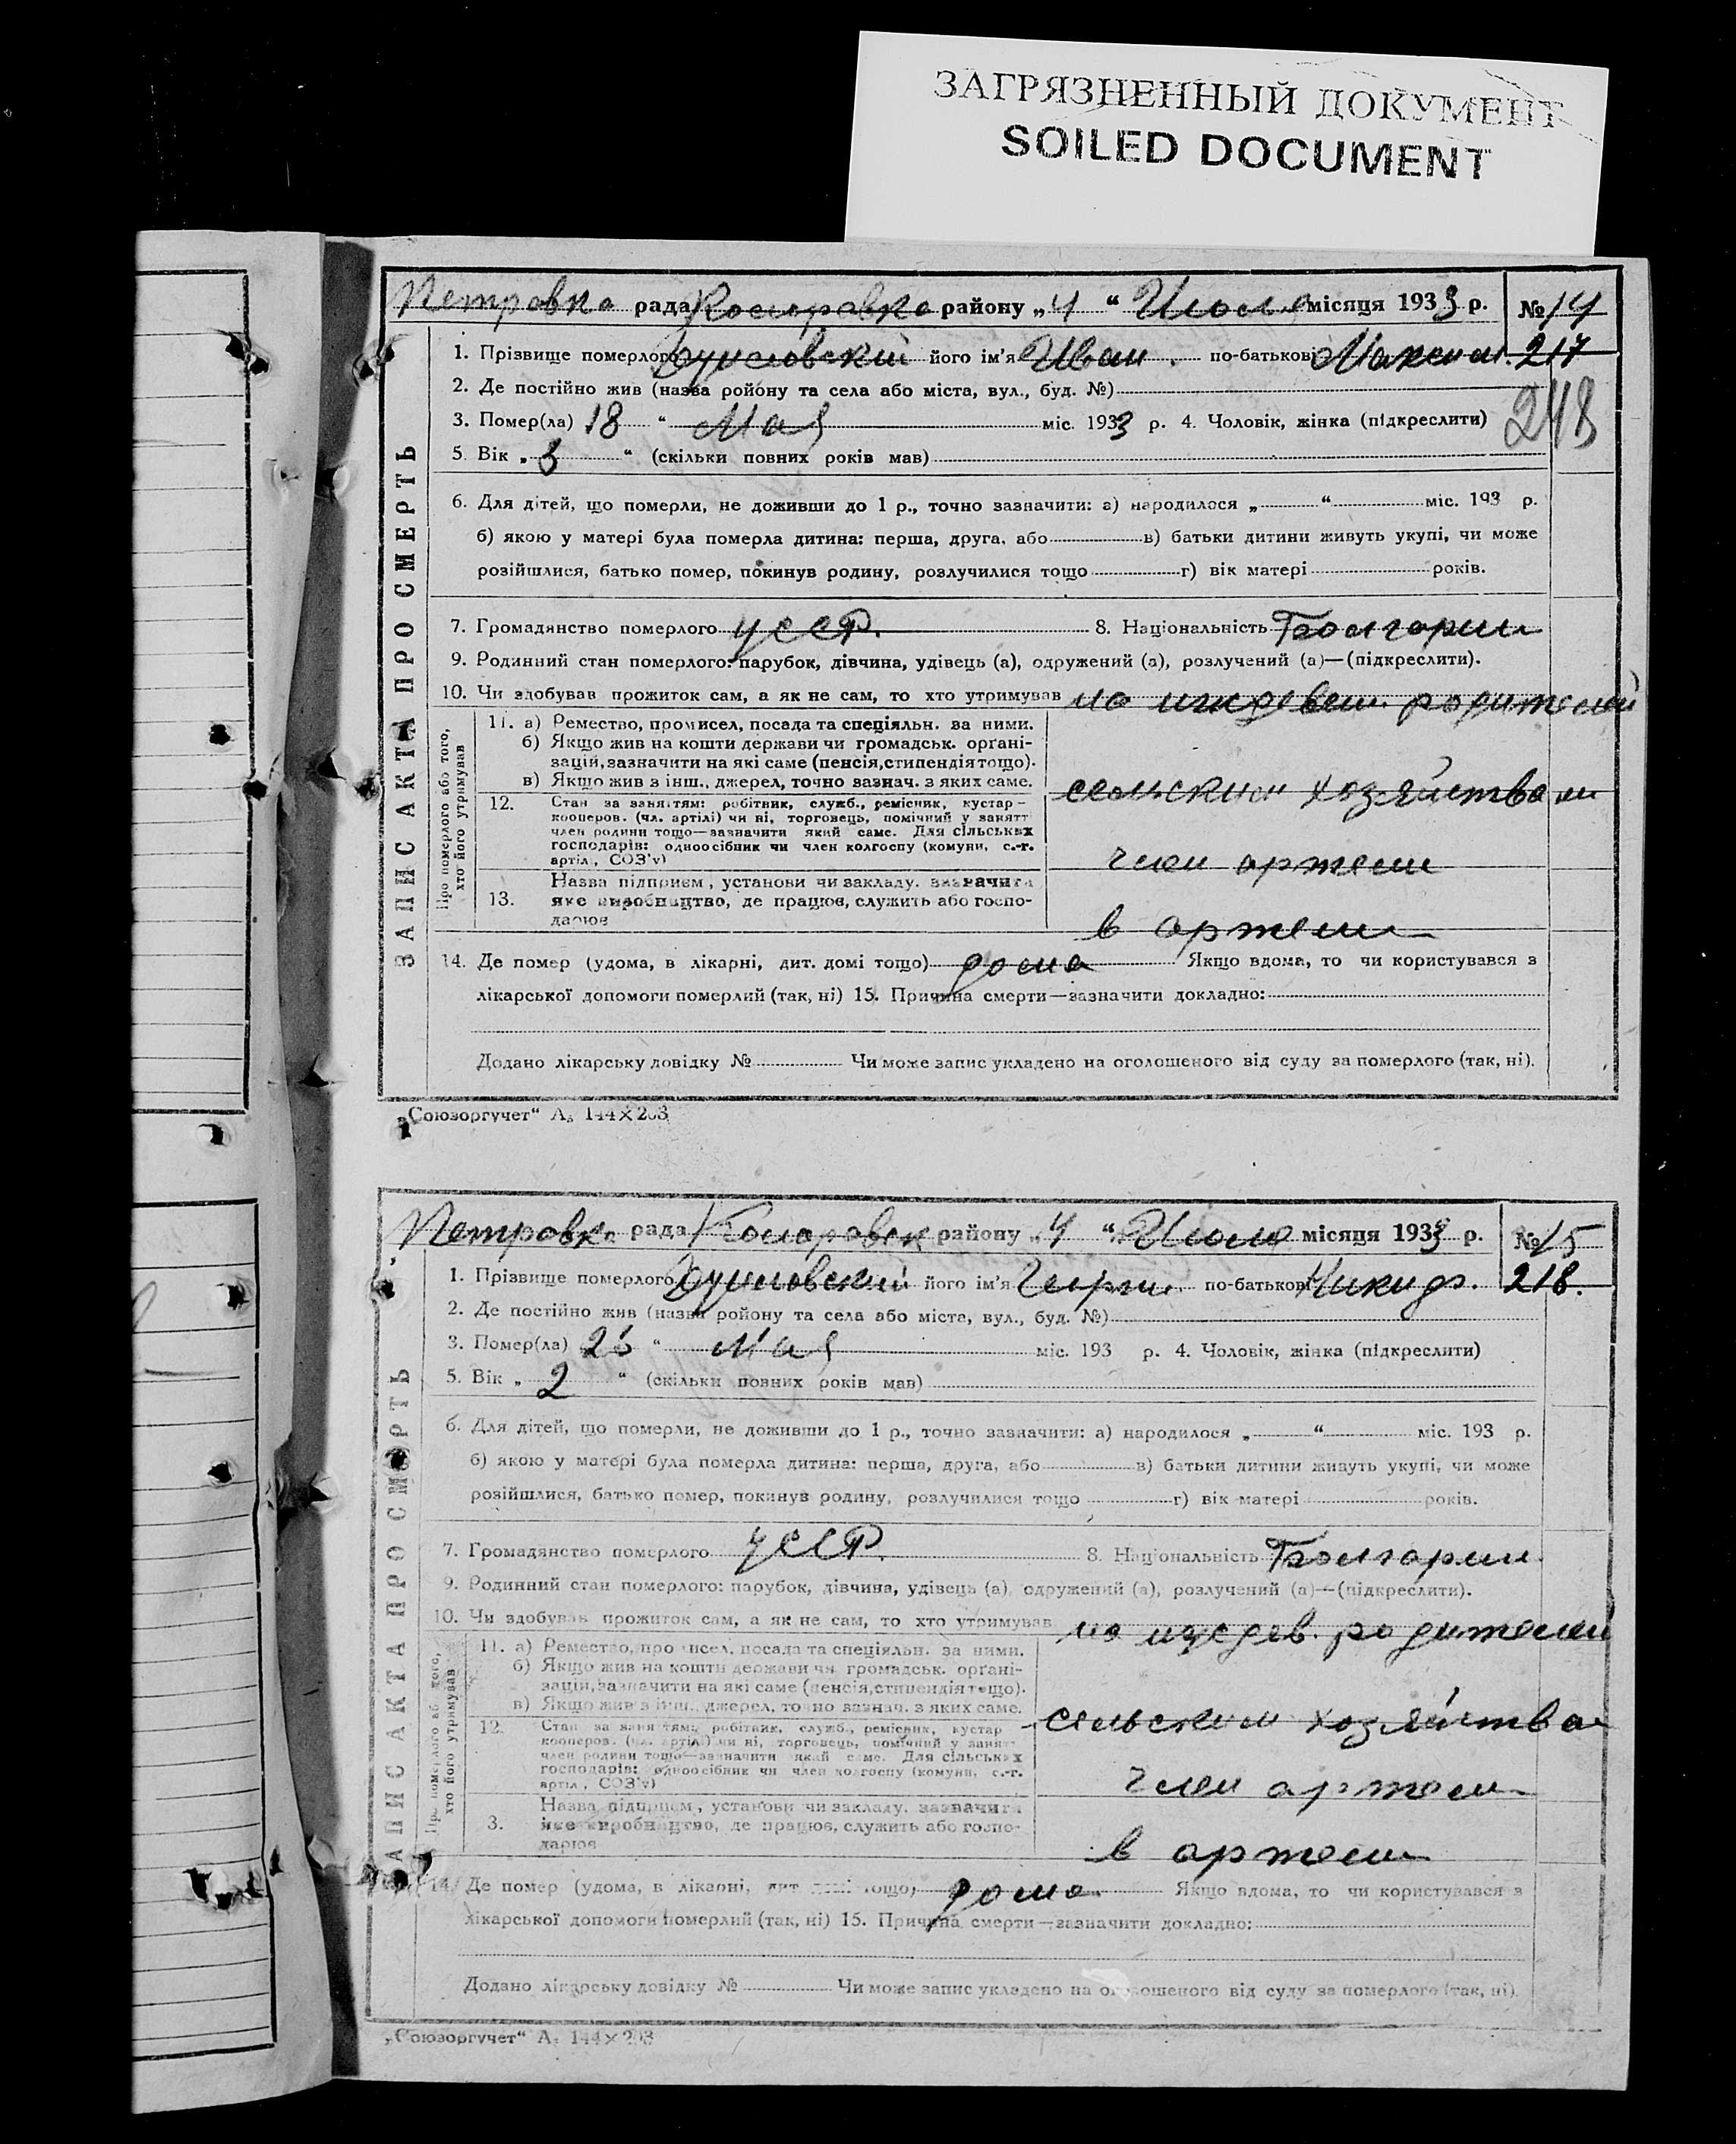 ЗАГРЯЗНЕННЫЙ ДОКУМЕНТ
SOILED DOCUMENT
Петровка рада району „4“ Июля місяця 1933 р. № 14
1. Прізвище померлого його ім'я Иван по-батькові Максим. 217
2. Де постійно жив (назва ройону та села або міста, вул., буд. №)
248
3. Помер(ла) 18 “ Мая міс. 1933 р. 4. Чоловік, жінка (підкреслити)
5. Вік „ 3 “ (скільки повних років мав)
6. Для дітей, що померли, не доживши до 1 р., точно зазначити: а) народилося „ “ міс. 193 р.
б) якою у матері була померла дитина: перша, друга, або в) батьки дитини живуть укупі, чи може
розійшлися, батько помер, покинув родину, розлучилися тощо г) вік матері років.
7. Громадянство померлого УССР. 8. Національність Болгарин
9. Родинний стан померлого: парубок, дівчина, удівець (а), одружений (а), розлучений (а)—(підкреслити).
10. Чи здобував прожиток сам, а як не сам, то хто утримував на иждевен. родителей
Про померлого або того, хто його утримував
11. а) Ремество, промисел, посада та спеціяльн. за ними.
б) Якщо жив на кошти держави чи громадськ. орґані-
зацій, зазначити на які саме (пенсія, стипендія тощо).
в) Якщо жив з інш., джерел, точно зазнач. з яких саме.
сельским хозяйством
12. Стан за заняттям: робітник, служб., ремісник, кустар-
кооперов. (чл. артілі) чи ні, торговець, помічний у занятт
член родини тощо—зазначити який саме. Для сільських
господарів: одноосібник чи член колгоспу (комуни, с.-г.
артіл., СОЗ'у)
член артели
13. Назва підприєм., установи чи закладу, зазначити
яке виробництво, де працює, служить або госпо-
дарює
в артели
14. Де помер (удома, в лікарні, дит. домі тощо) дома Якщо вдома, то чи користувався з
лікарської допомоги померлий (так, ні) 15. Причина смерти—зазначити докладно:
Додано лікарську довідку № Чи може запис укладено на оголошеного від суду за померлого (так, ні).
ЗАПИС АКТА ПРО СМЕРТЬ
„Союзоргучет“ А₅ 144×203
Петровка рада району „4“ Июля місяця 1933 р. № 15
1. Прізвище померлого його ім'я по-батькові 218.
2. Де постійно жив (назва ройону та села або міста, вул., буд. №)
3. Помер(ла) “ Мая міс. 193 р. 4. Чоловік, жінка (підкреслити)
5. Вік „ 2 “ (скільки повних років мав)
6. Для дітей, що померли, не доживши до 1 р., точно зазначити: а) народилося „ “ міс. 193 р.
б) якою у матері була померла дитина: перша, друга, або в) батьки дитини живуть укупі, чи може
розійшлися, батько помер, покинув родину, розлучилися тощо г) вік матері років.
7. Громадянство померлого УССР. 8. Національність Болгарин.
9. Родинний стан померлого: парубок, дівчина, удівець (а), одружений (а), розлучений (а)—(підкреслити).
10. Чи здобував прожиток сам, а як не сам, то хто утримував на иждев. родителей
Про померлого або того, хто його утримував
11. а) Ремество, промисел, посада та спеціяльн. за ними.
б) Якщо жив на кошти держави чи громадськ. орґані-
зацій, зазначити на які саме (пенсія, стипендія тощо).
в) Якщо жив з інш., джерел, точно зазнач. з яких саме.
сельским хозяйством
12. Стан за заняттям: робітник, служб., ремісник, кустар
кооперов. (чл. артілі) чи ні, торговець, помічний у занятт
член родини тощо—зазначити який саме. Для сільських
господарів: одноосібник чи член колгоспу (комуни, с.-г.
артіл., СОЗ'у)
член артели
3. Назва підприєм., установи чи закладу, зазначити
яке виробництво, де працює, служить або госпо-
дарює
в артели
14. Де помер (удома, в лікарні, дит. домі тощо) дома. Якщо вдома, то чи користувався з
лікарської допомоги померлий (так, ні) 15. Причина смерти—зазначити докладно:
Додано лікарську довідку № Чи може запис укладено на оголошеного від суду за померлого (так, ні).
ЗАПИС АКТА ПРО СМЕРТЬ
„Союзоргучет“ А₅ 144×203